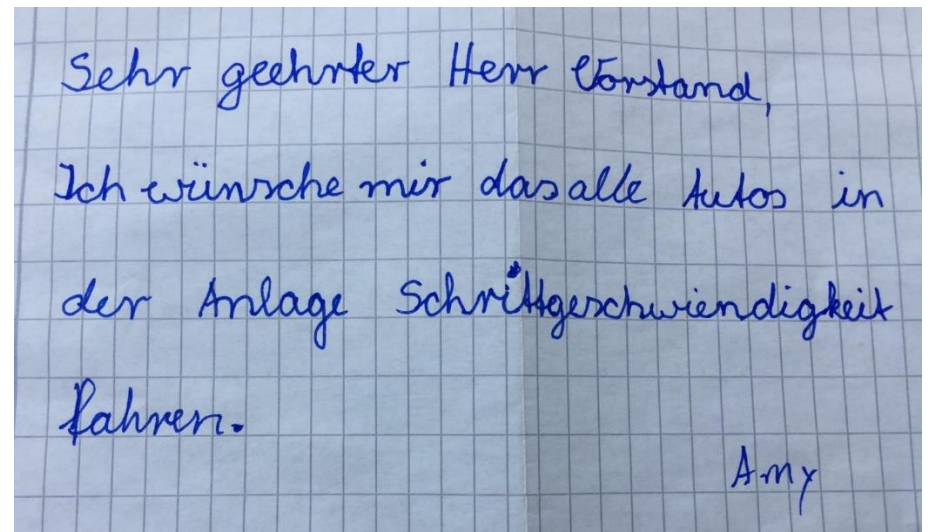 Sehr geehrter Herr Vorstand,
Ich wünsche mir das alle Autos in
der Anlage Schrittgeschwiendigkeit
fahren.
Amy